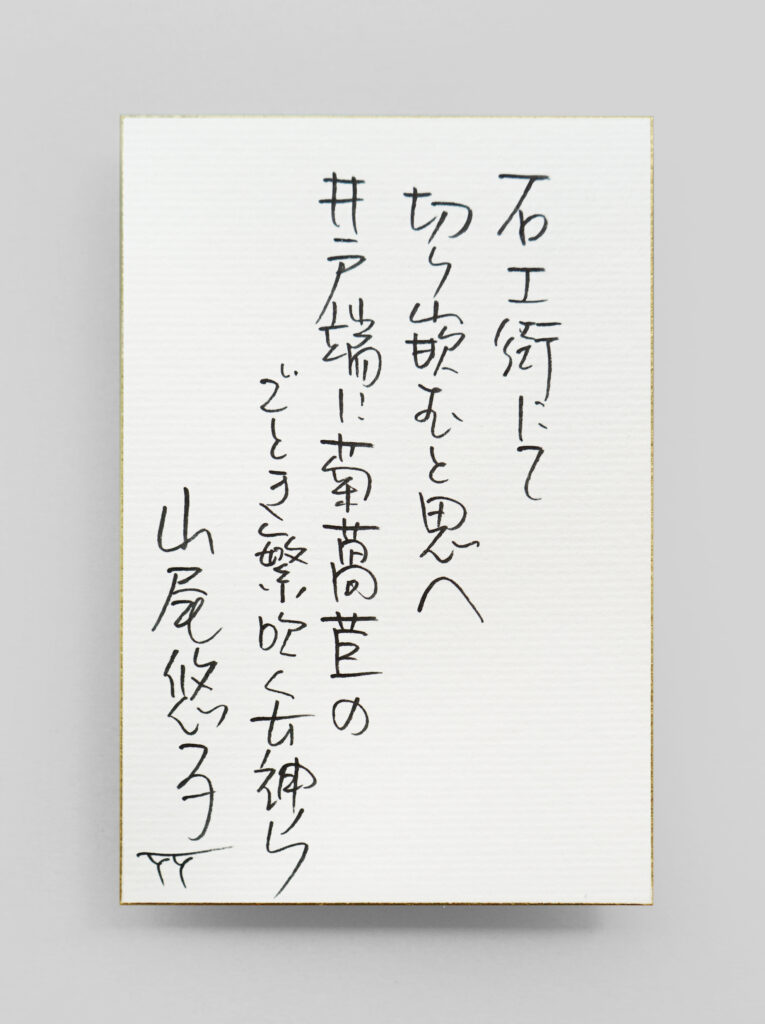 石工街にて
切り嵌むと思へ
井戸端に菊萵苣の
ごとき繁吹く女神ら
山尾悠子
YY